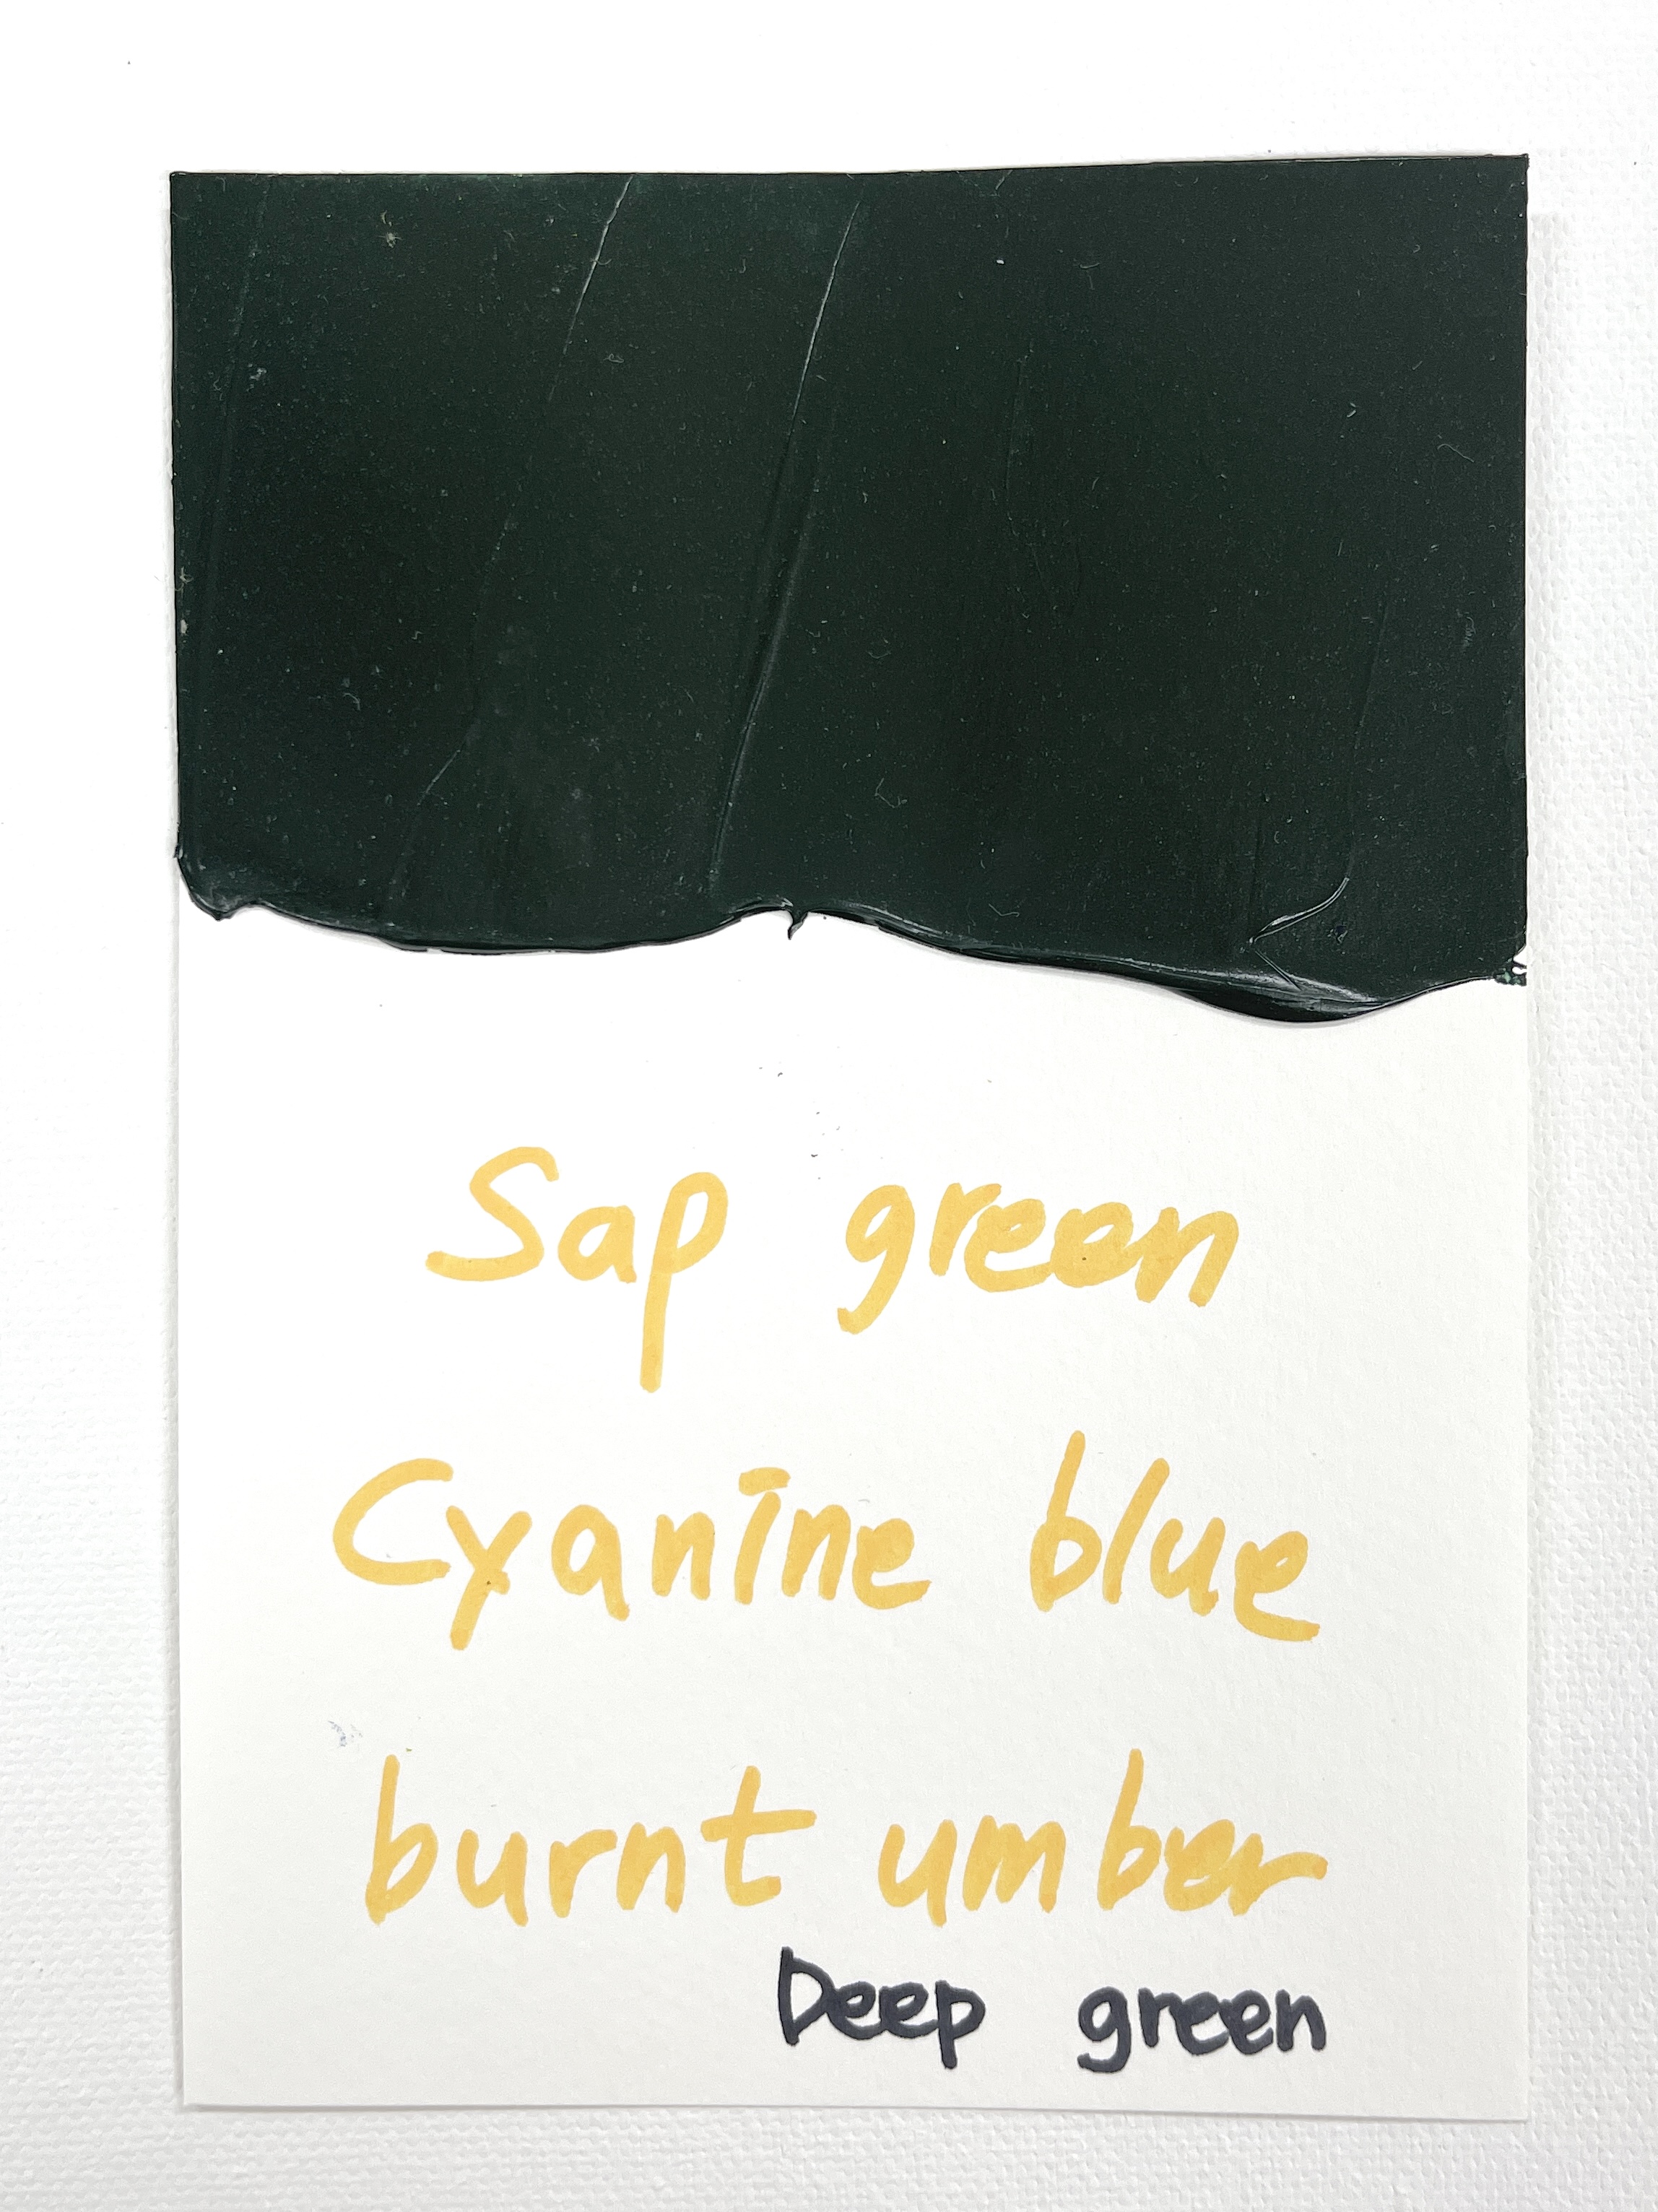 Sap green
Cyanine blue
burnt umber
Deep green